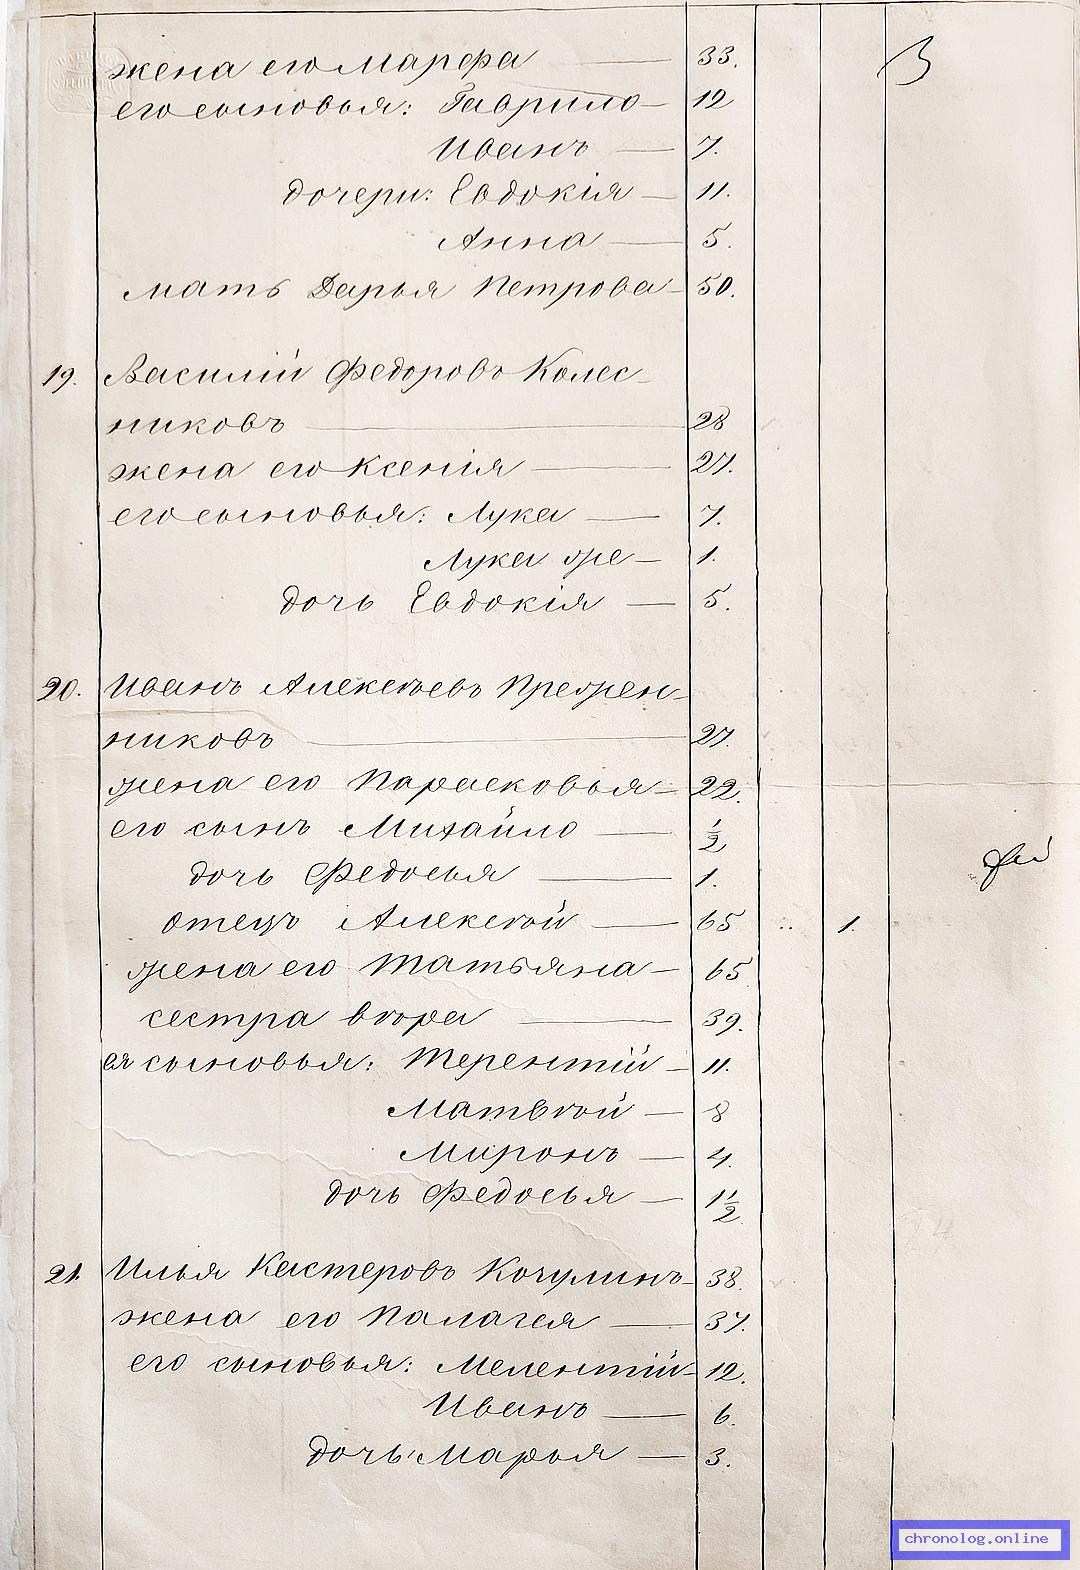 жена его Марфа 33.
его сыновья: Гаврило 12
Иванъ 7.
дочери: Евдокія 11.
Анна 5.
мать Дарья Петрова 50.
19. Василій Федоровъ Колес-
никовъ 28
жена его Ксенія 27.
его сыновья: Лука 7.
Лука же 1.
дочь Евдокія 5.
20. Иванъ Алексѣевъ Пряжен-
никовъ 27.
жена его Парасковья 22.
его сынъ Михайло 1/2
дочь Федосья 1.
отецъ Алексѣй 65 1.
жена его Татьяна 65
сестра 39.
ея сыновья: Терентій 11.
Матвѣй 8
Миронъ 4.
дочь Федосья 1 1/2
21. Илья Нестеровъ Кочулинъ 38.
жена его Палагея 37.
его сыновья: Мелентій 12.
Иванъ 6.
дочь Марья 3.
chronolog.online